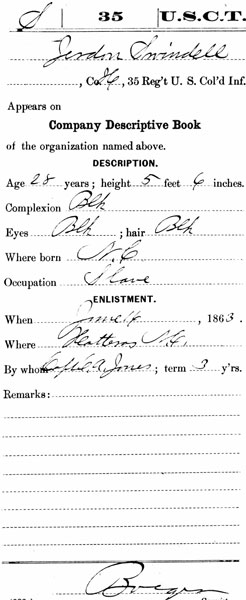 S 35 U.S.C.T.
Jerdon Swindell
, Co. , 35 Reg't U. S. Col'd Inf.
Appears on
Company Descriptive Book
of the organization named above.
DESCRIPTION.
Age 28 years; height 5 feet 6 inches.
Complexion Blk
Eyes Blk ; hair Blk
Where born N.C
Occupation Slave
ENLISTMENT.
When June , 1863.
Where Hatteras N.C.
By whom Capt. Jones; term 3 y'rs.
Remarks: